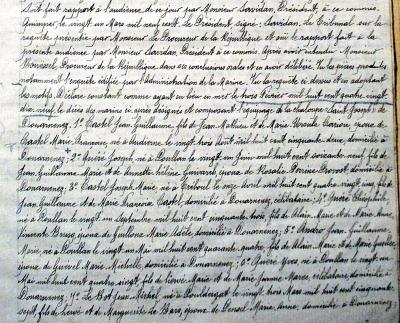 doit fait rapport à l'audience de ce jour par Monsieur Larvidan, Président, à ce commis.
Quimper, le vingt un Mars mil neuf cent. Le Président, signé: Larvidan. Le Tribunal sur la
requête présentée par Monsieur le Procureur de la République et ouï le rapport fait à la
présente audience par Monsieur Larvidan, Président à ce commis. Après avoir entendu Monsieur
Procureur de la République, dans ses conclusions orales et en avoir délibéré. Vu les pièces produites
notamment l'enquête vérifiée par l'administration de la Marine. Vu la requête ci-dessus et en adoptant
les motifs, Déclare constant comme ayant eu lieu en mer le trois Février mil huit cent quatre vingt
dix neuf le décès des marins ci-après désignés et composant l'équipage de la chaloupe "Saint Joseph" de
Douarnenez. 1° Castel Jean Guillaume, fils de Jean Mathieu et de Marie Ursule Carion, époux de
Castel Marie Françoise, né à Audierne le vingt trois Août mil huit cent cinquante deux, domicilié à
Douarnenez; 2° Joseph, né à Poullan le vingt un Juin mil huit cent soixante neuf, fils de
Jean Guillaume Marie et de Hélène époux de Rosalie Perrine Provost, domicilié à
Douarnenez; 3° Castel Joseph Marie, né à Tréboul le onze Avril mil huit cent quatre vingt un, fils de
Jean Guillaume et de Marie Françoise Castel, domicilié à Douarnenez, célibataire; 4°
né à Poullan le vingt un Septembre mil huit cent cinquante trois, fils de Alain Marie et de Marie Anne
époux de Marie Adèle domicilié à Douarnenez; 5° Jean Guillaume
Marie, né à Poullan le vingt un Mai mil huit cent quarante quatre, fils de Alain Marie et de Marie
époux de Marie Michelle, domicilié à Douarnenez; 6° Yves né à Poullan le vingt un
Mai mil huit cent quatre vingt, fils de Pierre Marie et de Marie Jeanne célibataire, domicilié à
Douarnenez; 7° Le Bot Jean Michel né à Pouldergat le vingt trois Mars mil huit cent cinquante
sept, fils de et de Marguerite Le Bars, époux de Marie Anne, domicilié à Douarnenez;